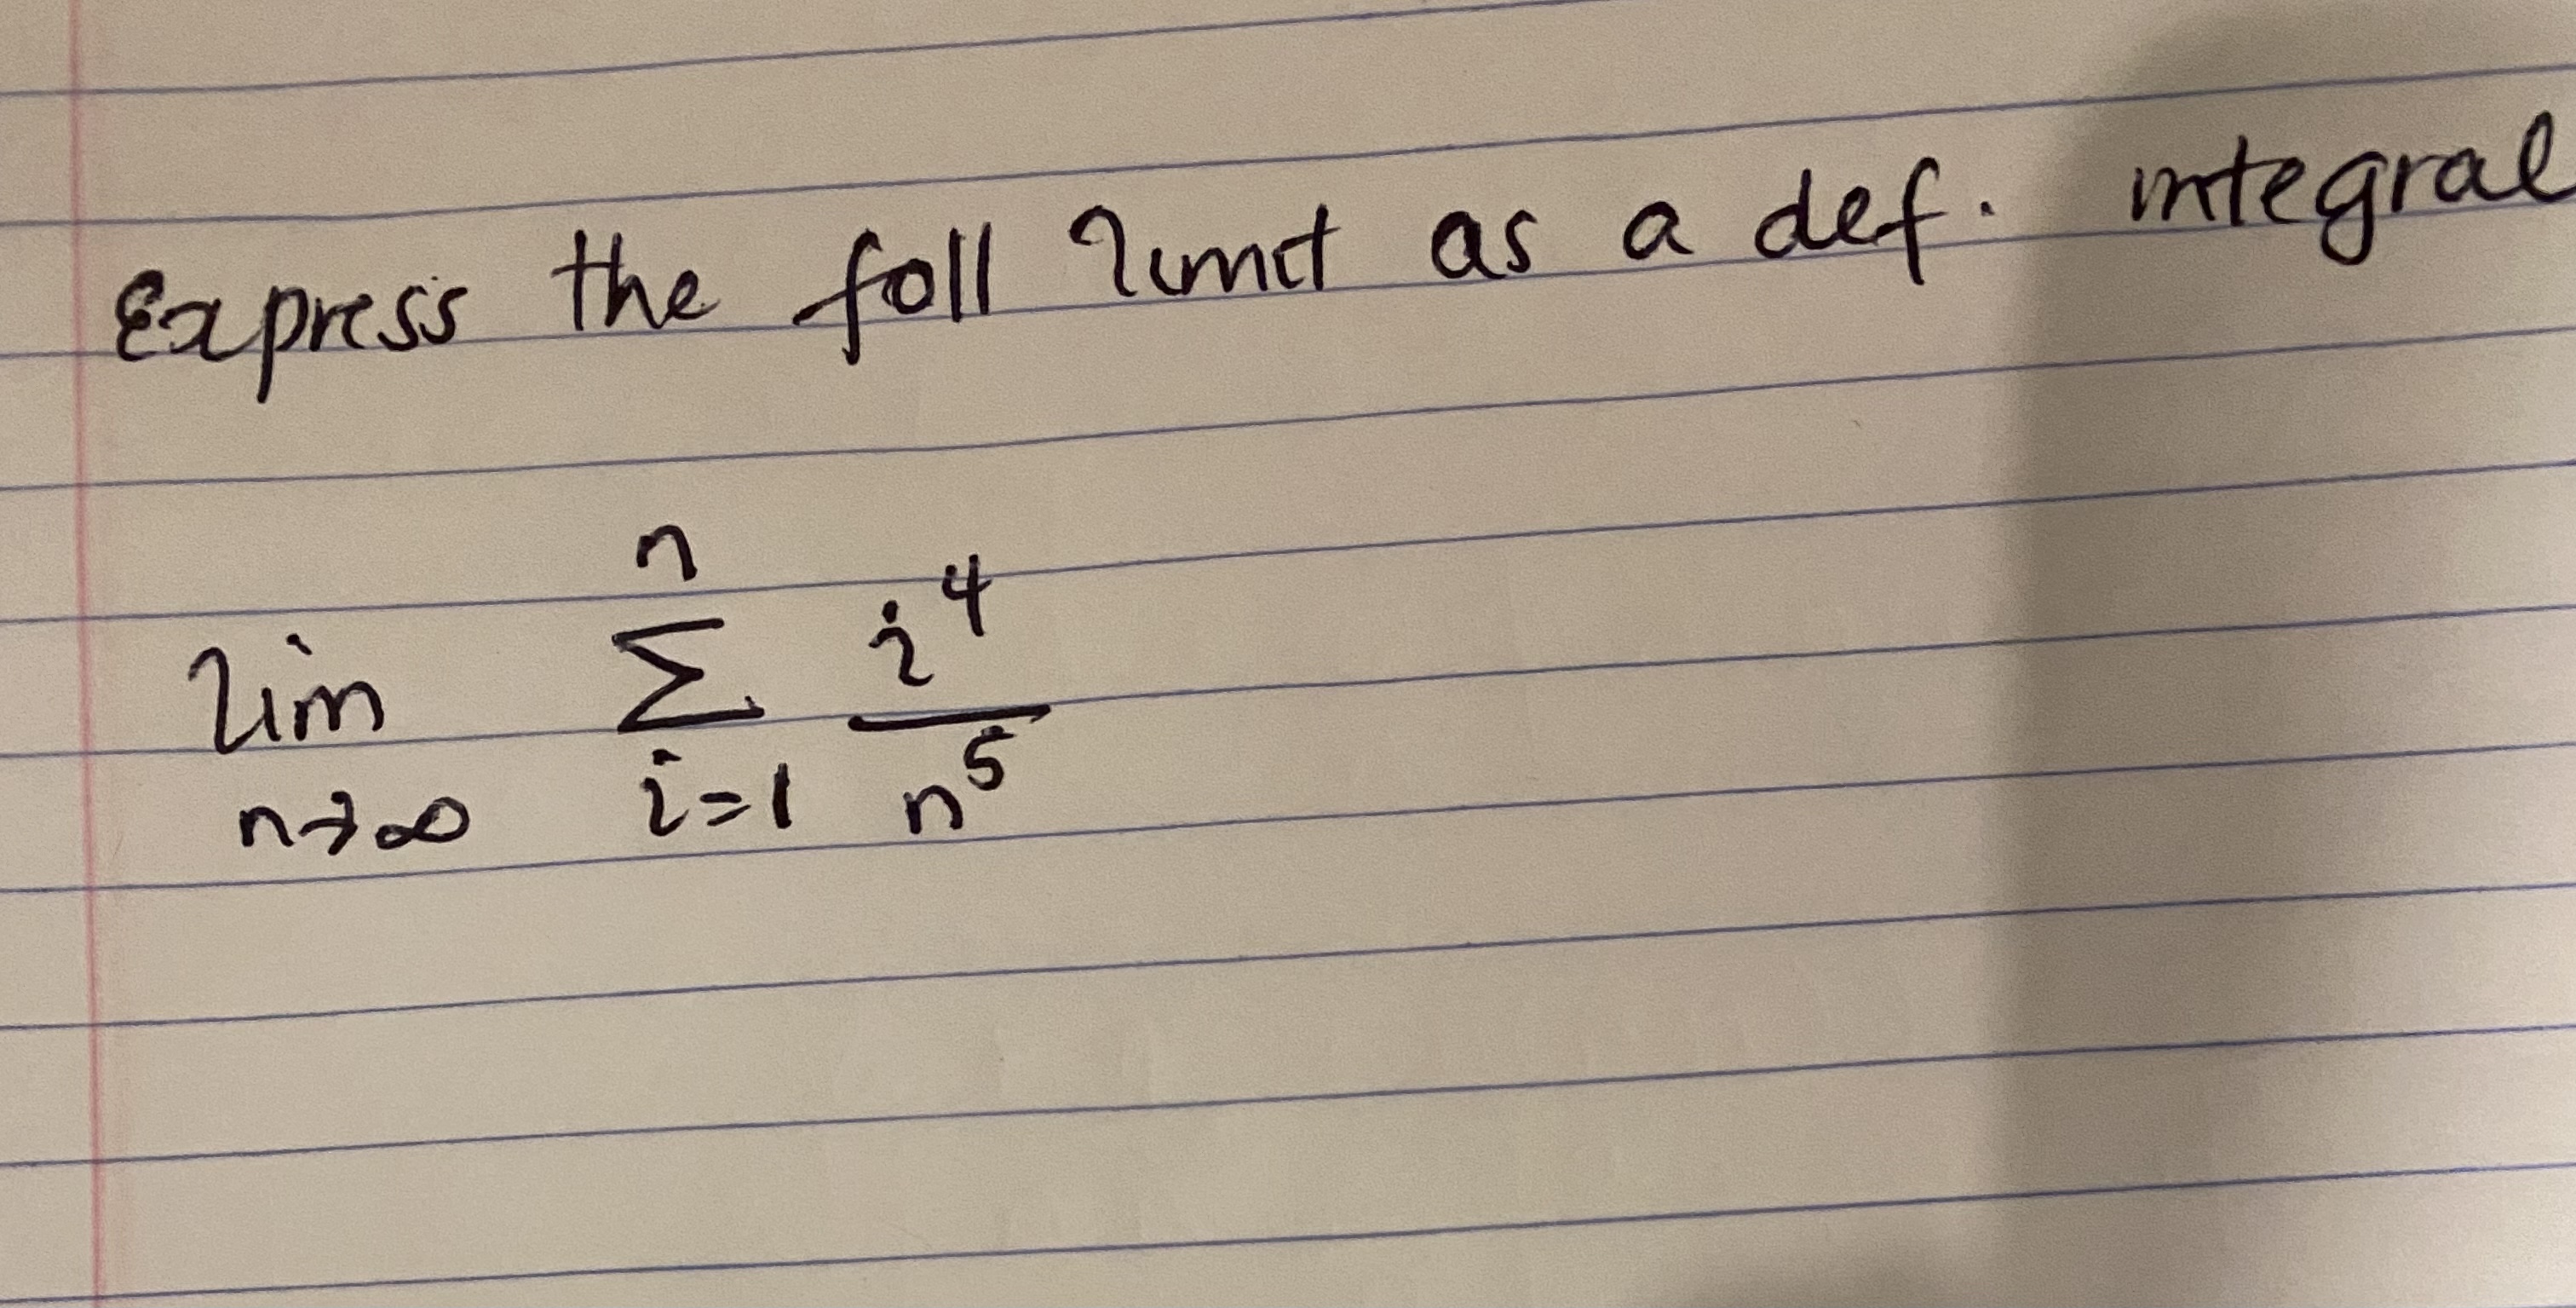 Express the foll limit as a def. integral
lim n→∞ n Σ i=1 i^4 / n^5